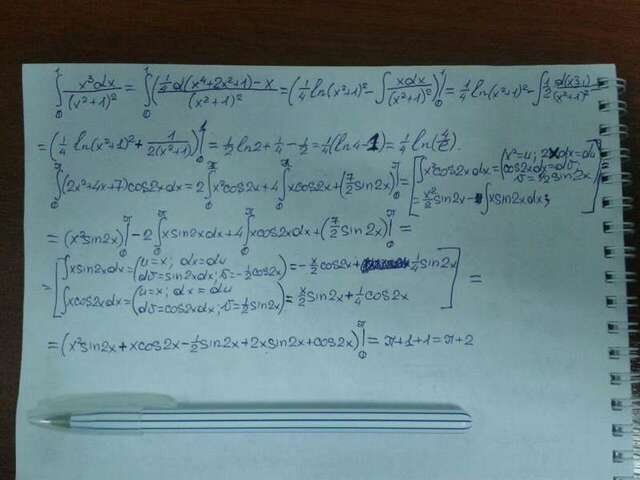 ∫₀¹ x³dx/(x²+1)² = ∫₀¹ (¼d(x⁴+2x²+1)-x)/(x²+1)² = (¼ln(x²+1)² - ∫xdx/(x²+1)²)|₀¹ = ¼ln(x²+1)² - ∫½
= (¼ln(x²+1)² + 1/(2(x²+1)))|₀¹ = ½ln2 + ¼ - ½ = ¼(ln4-1) = ¼ln(4/e).
∫₀^π (2x²+4x+7)cos2xdx = 2∫₀^π x²cos2xdx + 4∫₀^π xcos2xdx + (7/2 sin2x)|₀^π = [∫x²cos2xdx = (x²=u; 2xdx=du
cos2xdx=dv
v=½sin2x)
= x²/2 sin2x - ∫xsin2xdx;] =
= (x²sin2x)|₀^π - 2∫₀^π xsin2xdx + 4∫₀^π xcos2xdx + (7/2 sin2x)|₀^π =
= [∫xsin2xdx = (u=x; dx=du
dv=sin2xdx; v=-½cos2x) = -x/2 cos2x + ¼sin2x
∫xcos2xdx = (u=x; dx=du
dv=cos2xdx; v=½sin2x) = x/2 sin2x + ¼cos2x] =
= (x²sin2x + xcos2x - ½sin2x + 2xsin2x + cos2x)|₀^π = π+1+1 = π+2